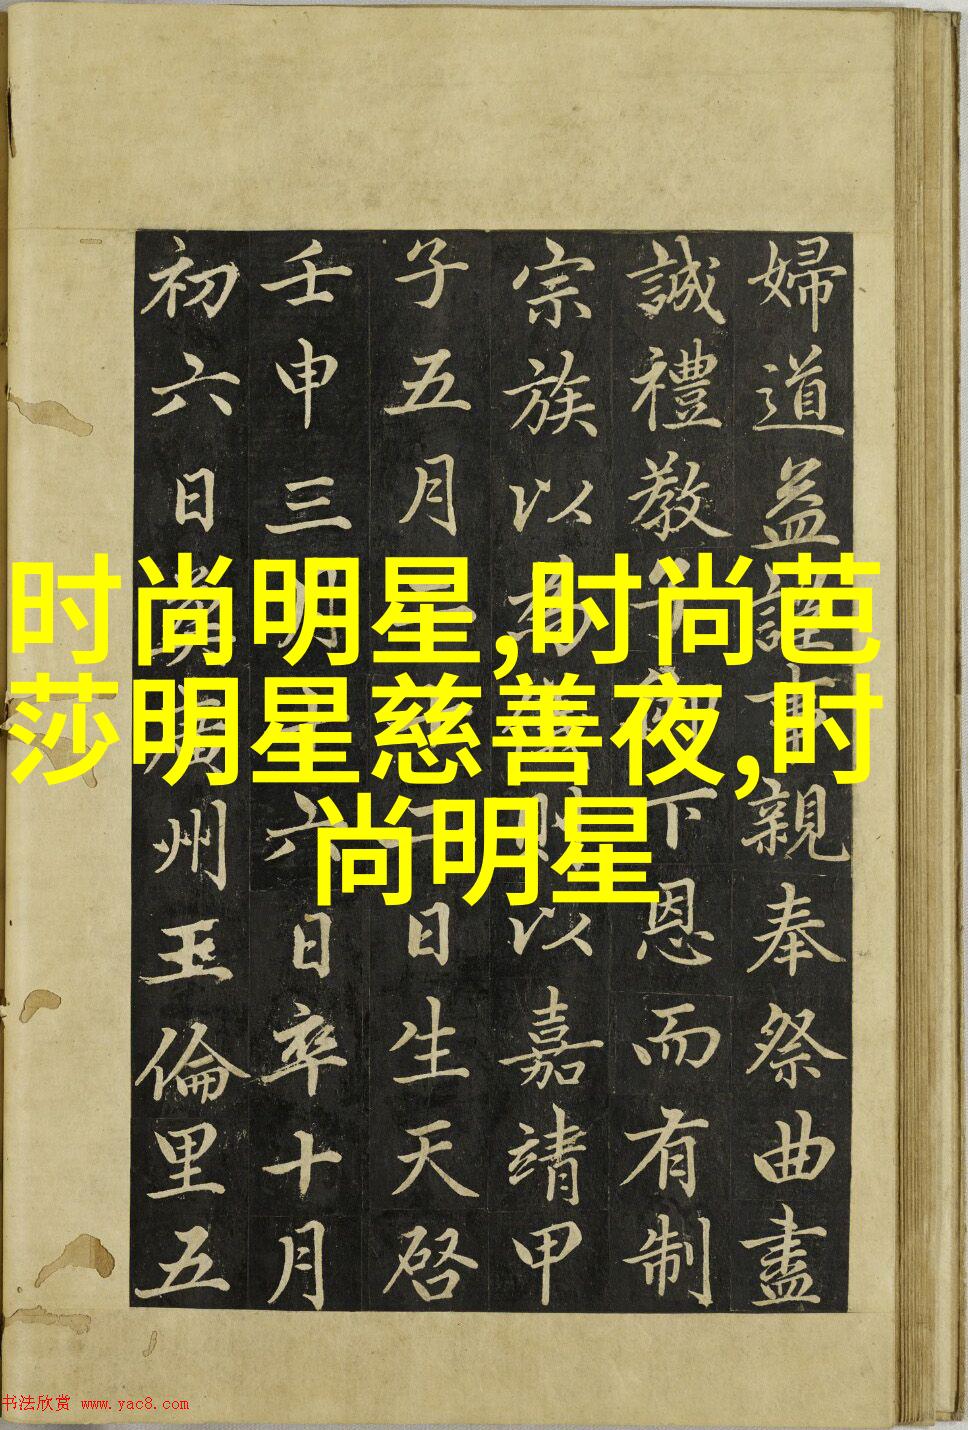 时尚明星,时尚芭
莎明星慈善夜,时
尚明星
婦道益謹事親奉祭曲盡
誠禮教子御下恩而有制
宗族以為以嘉靖甲
子五月二日生天啓
壬申三月六日卒十月
初六日葬廣州玉倫里五
书法欣赏 www.yac8.com